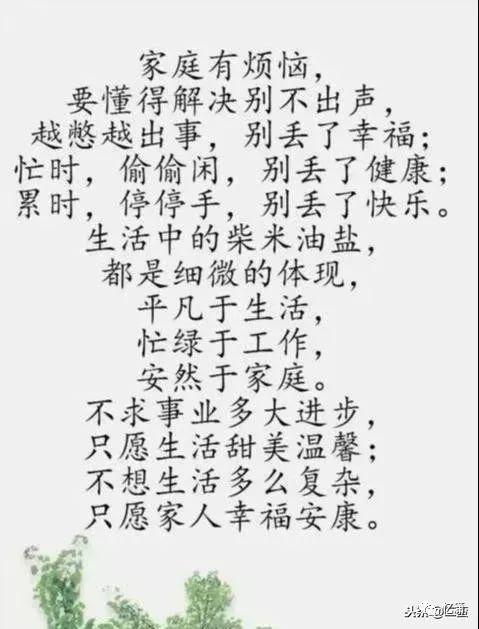 家庭有烦恼,
要懂得解决别不出声,
越憋越出事，别丢了幸福;
忙时，偷偷闲，别丢了健康;
累时，停停手，别丢了快乐。
生活中的柴米油盐,
都是细微的体现,
平凡于生活,
忙绿于工作,
安然于家庭。
不求事业多大进步,
只愿生活甜美温馨;
不想生活多么复杂,
只愿家人幸福安康。